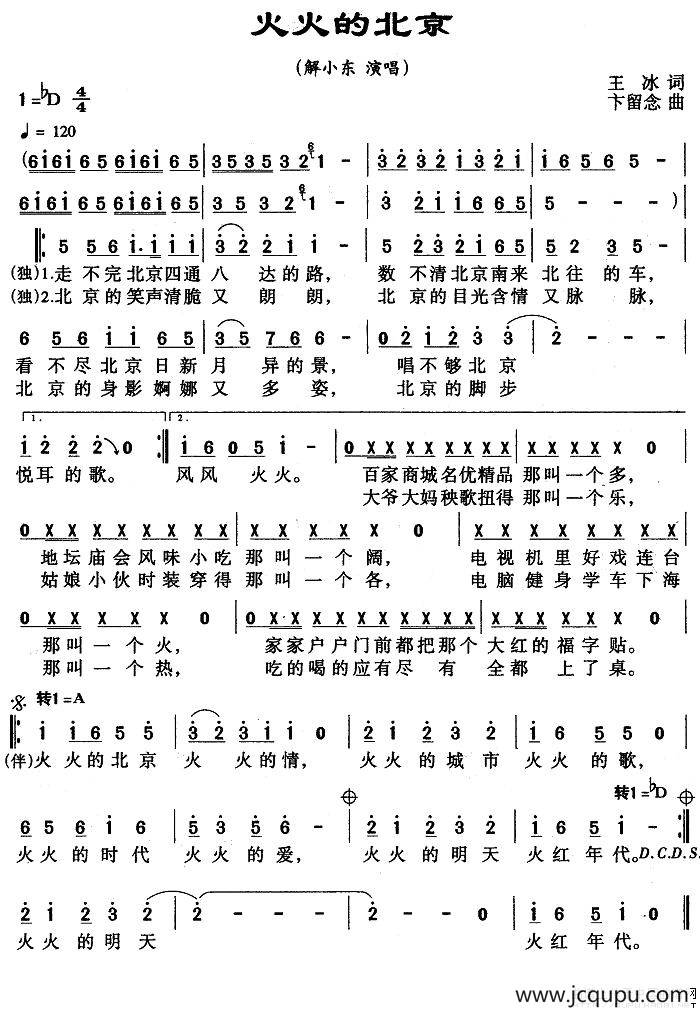 火火的北京
（解小东 演唱）
王 冰 词
卞留念 曲
1=♭D 4/4
♩=120
(6i6i 6 5 6i6i 6 5 | 3 5 3 5 3 2 6 1 - | 3 2 3 2 i 3 2 i | i 6 5 6 5 -
6i6i 6 5 6i6i 6 5 | 3 5 3 2 6 1 - | 3 2 i i 6 6 5 | 5 - - )
𝄆 5 5 6 i. i i i | 3 2 2 i i - | 5 2 3 2 i 6 5 | 5 2 3 5 -
(独)1.走 不完北京四通 八 达的路， 数 不清北京南来 北往 的车，
(独)2.北 京的笑声清脆 又 朗 朗， 北 京的目光含情 又脉 脉，
6 5 6 i i 6 5 | 3 5 7 6 6 - | 0 2 i 2 3 3 | 2 - -
看 不尽 北京 日新 月 异的景， 唱不够北京
北 京的身影婀娜 又 多 姿， 北京的脚步
1. 2.
i 2 2 2 0 𝄇 i 6 0 5 i - | 0 X X X X X X X X X X X X 0
悦耳 的歌。 风风 火火。 百家商城名优精品 那叫一个多，
大爷大妈秧歌扭得 那叫一个乐，
0 X X X X X X X X | X X X X X 0 | X X X X X X X X
地坛庙会风味小吃 那叫 一个 阔， 电视机里好戏连台
姑娘小伙时装穿得 那叫 一个 各， 电脑健身学车下海
0 X X X X X 0 | 0 X X X X X X X X X | X X X X X X 0
那叫一个火， 家家户户门前都把那个 大红的福字贴。
那叫一个热， 吃的喝的应有尽 有 全都 上了桌。
𝄋 转1=A
𝄆 i i 6 5 5 | 3 2 3 i i 0 | 2 i 2 3 2 | i 6 5 5 0
(伴)火 火的北京 火 火的情， 火火的城市 火火 的歌，
转1=♭D
6 5 6 i 6 | 5 3 5 6 - | 2 i 2 3 2 | i 6 5 i - 𝄇
火火的时代 火火 的爱， 火火的明天 火红年代。D.C.D.S.
2 i 2 3 2 | 2 - - - | 2 - - 0 | i 6 5 i -
火火的明天 火红年代。
www.jcqupu.com